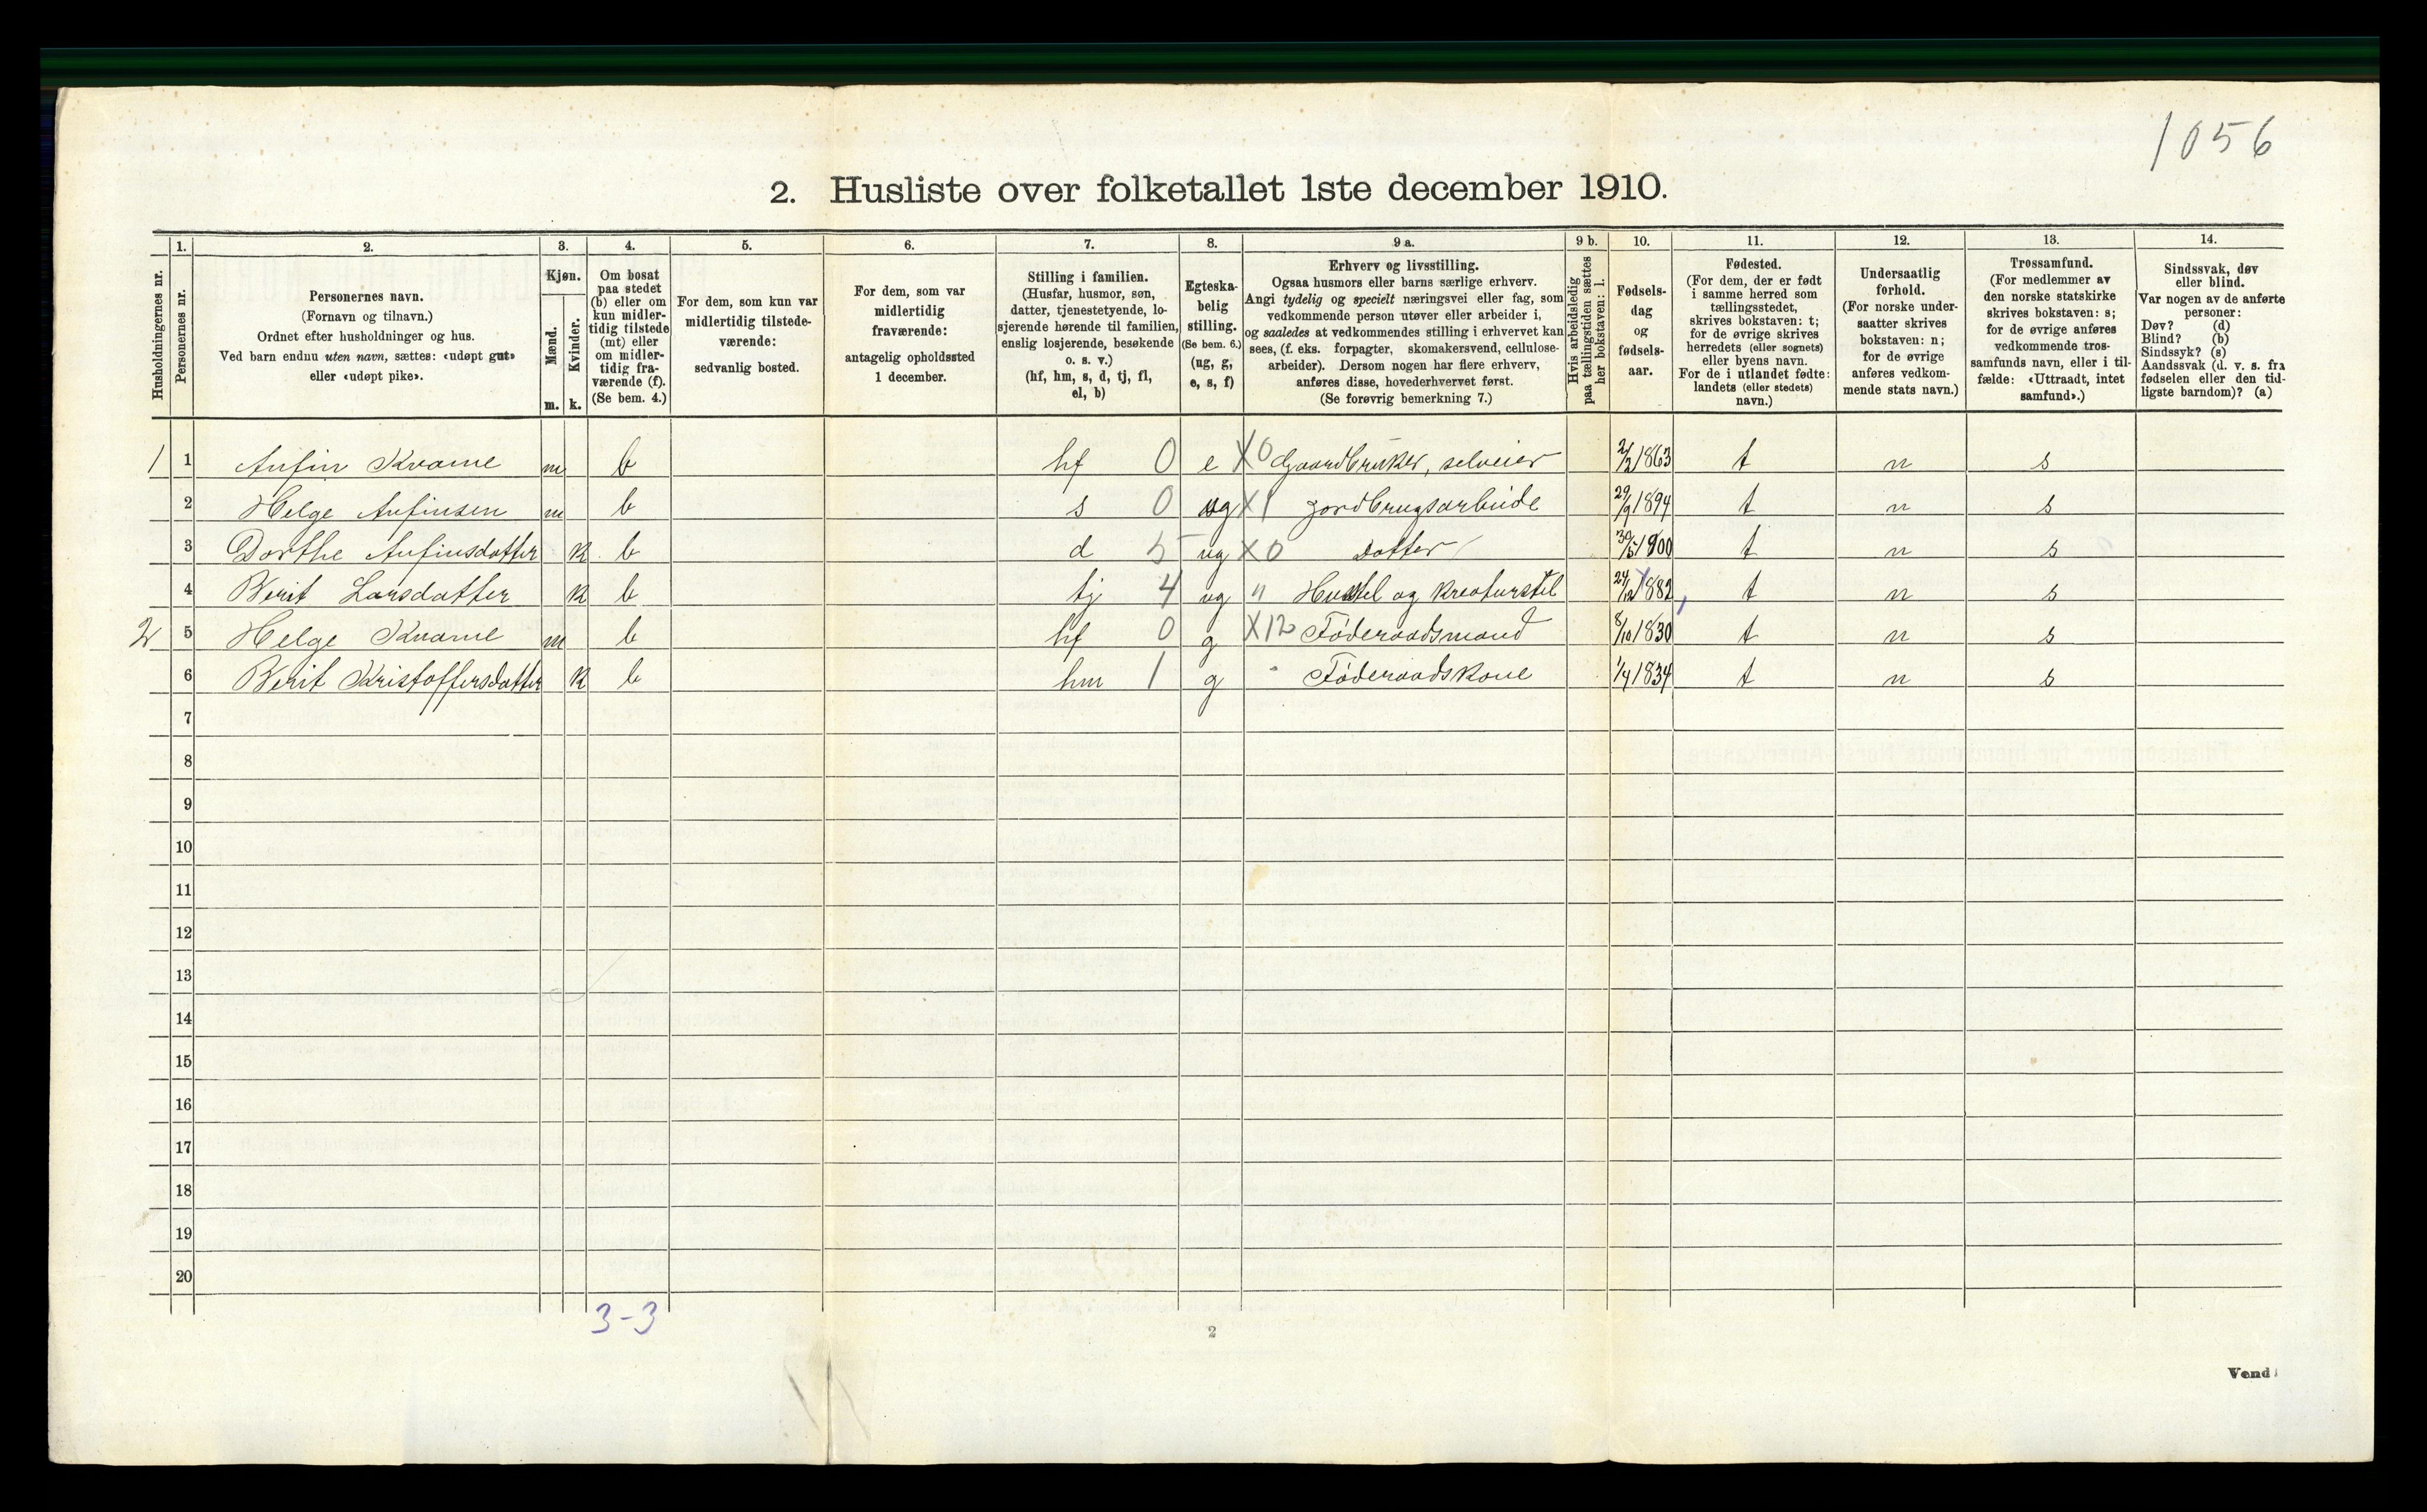 1056
2. Husliste over folketallet 1ste december 1910.
Husholdningernes nr.
1. Personernes nr.
2. Personernes navn.
(Fornavn og tilnavn.)
Ordnet efter husholdninger og hus.
Ved barn endnu uten navn, sættes: «udøpt gut»
eller «udøpt pike».
3. Kjøn.
Mænd. m.
Kvinder. k.
4. Om bosat
paa stedet
(b) eller om
kun midler-
tidig tilstede
(mt) eller
om midler-
tidig fra-
værende (f).
(Se bem. 4.)
5. For dem, som kun var
midlertidig tilstede-
værende:
sedvanlig bosted.
6. For dem, som var
midlertidig
fraværende:
antagelig opholdssted
1 december.
7. Stilling i familien.
(Husfar, husmor, søn,
datter, tjenestetyende, lo-
sjerende hørende til familien,
enslig losjerende, besøkende
o. s. v.)
(hf, hm, s, d, tj, fl,
el, b)
8. Egteska-
belig
stilling.
(Se bem. 6.)
(ug, g,
e, s, f)
9 a. Erhverv og livsstilling.
Ogsaa husmors eller barns særlige erhverv.
Angi tydelig og specielt næringsvei eller fag, som
vedkommende person utøver eller arbeider i,
og saaledes at vedkommendes stilling i erhvervet kan
sees, (f. eks. forpagter, skomakersvend, cellulose-
arbeider). Dersom nogen har flere erhverv,
anføres disse, hovederhvervet først.
(Se forøvrig bemerkning 7.)
9 b. Hvis arbeidsledig
paa tællingstiden sættes
her bokstaven: l.
10. Fødsels-
dag
og
fødsels-
aar.
11. Fødested.
(For dem, der er født
i samme herred som
tællingsstedet,
skrives bokstaven: t;
for de øvrige skrives
herredets (eller sognets)
eller byens navn.
For de i utlandet fødte:
landets (eller stedets)
navn.)
12. Undersaatlig
forhold.
(For norske under-
saatter skrives
bokstaven: n;
for de øvrige
anføres vedkom-
mende stats navn.)
13. Trossamfund.
(For medlemmer av
den norske statskirke
skrives bokstaven: s;
for de øvrige anføres
vedkommende tros-
samfunds navn, eller i til-
fælde: «Uttraadt, intet
samfund».)
14. Sindssvak, døv
eller blind.
Var nogen av de anførte
personer:
Døv? (d)
Blind? (b)
Sindssyk? (s)
Aandssvak (d. v. s. fra
fødselen eller den tid-
ligste barndom)? (a)
1 1 Anfin Kvame m b hf 0 e X0 Gaardbruker, selveier 1863 t n s
2 Helge Anfinsen m b s 0 ug X1 Jordbrugsarbeide 29/9 1894 t n s
3 Dorthe Anfinsdatter k b d 5 ug X0 Datter 30/5 1900 t n s
4 Berit Larsdatter k b tj 4 ug " Husstel og kreaturstel 24/12 1882 t n s
2 5 Helge Kvame m b hf 0 g X12 Føderaadsmand 8/10 1830 t n s
6 Berit Kristoffersdatter k b hm 1 g " Føderaadskone 1/4 1834 t n s
7
8
9
10
11
12
13
14
15
16
17
18
19
20
3-3
2
Vend!